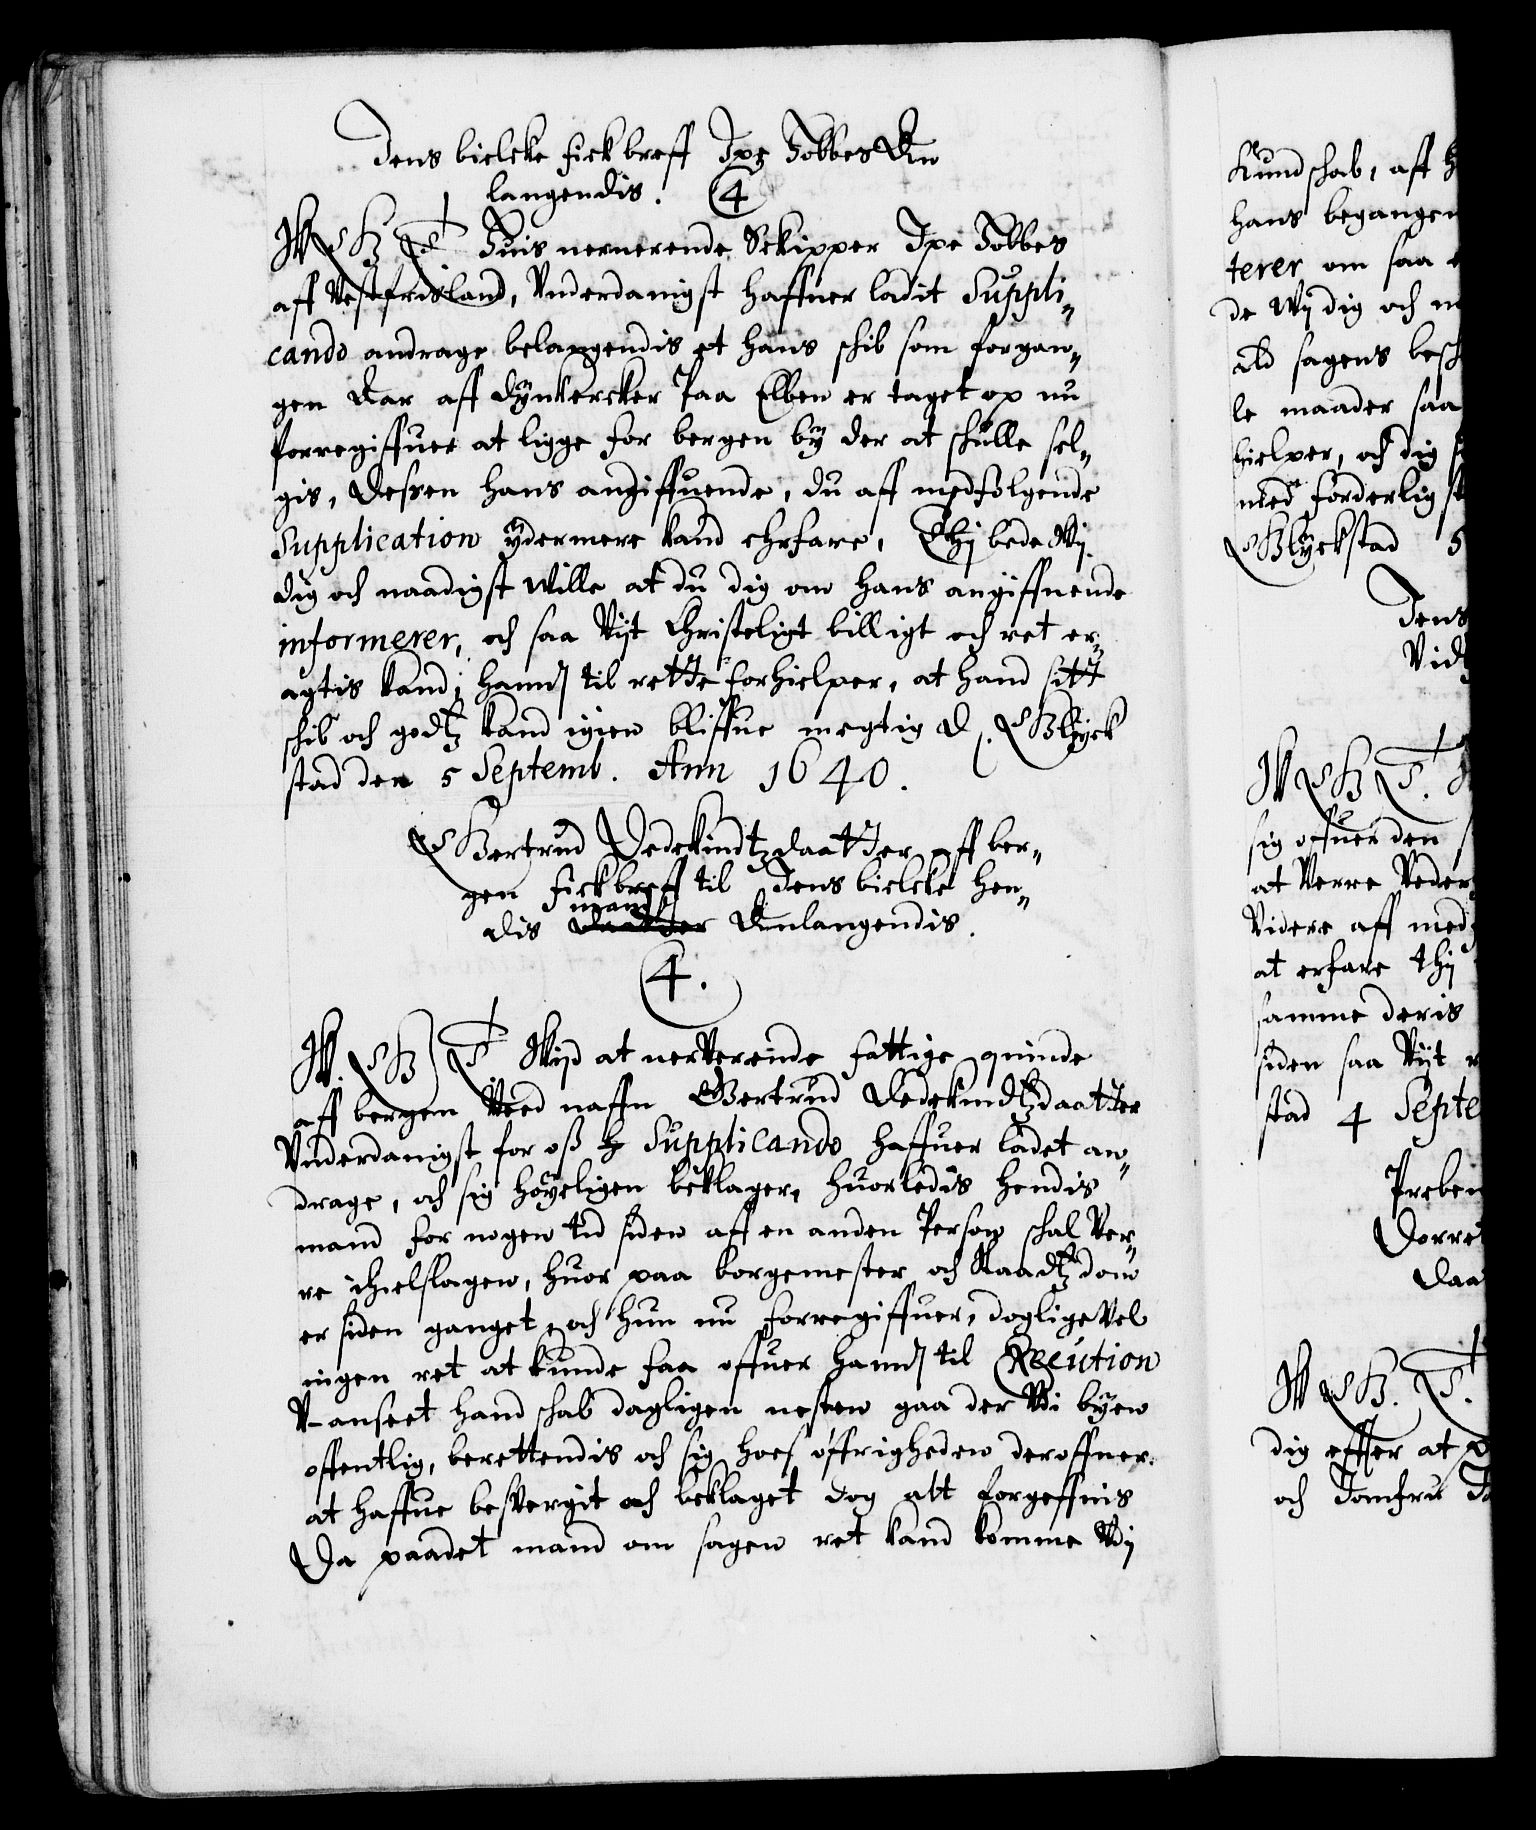 Jens bielcke fick breff Jpe Jobbes An
langendis. 4
W G T Huis nerverende Schipper Jpe Jobbes
aff Vestfrisland, Vnderdanigst haffuer ladit Suppli„
cando andrage belangendis et hans schib som forgan„
gen Aar aff dynkercker Paa Elben er taget op nu
forregiffuer at ligge for bergen by der at schulle sel„
gis, dessen hans angiffuende, du aff medfølgende
Supplication ydermere kand ehrfare, Thj bede Wij
dig och naadigst wille at du dig om hans angiffuende
informerer, och saa Vijt Christeligt billigt och ret er„
agtis kand, hannd til rette forhielper, at hand sitt
schib och godtz kand igien bliffue megtig D. Glyck
stad den 5 Septemb. Ann 1640.
Gertrud Vedekindtzdaatter aff ber„
gen fick breff til Jens bielcke hen„
mand
dis daatter Anlangendis.
4.
W. G T Wijd at nerverende fattige quinde
aff bergen Veed naffn Gertrud Vedekindtzdaatter
Vnderdanigst for oß Supplicando haffuer ladet an„
drage, och sig høyeligen beklager, huorledis hendis
mand for nogen tid siden aff en anden Person schal Ver„
re ihielslagen, huor paa borgemester och Raadtz dom
er siden ganget och hun nu forregiffuer, doglige vel
ingen ret at kunde faa offuer hannd til Execution
V-anseet hand schal dagligen nesten gaa der Vdi byen
offentlig, berettendis och sig hoes øffrigheden deroffuer
at haffue besvergit och beklaget dog alt forgeffuis
Da paadet mand om sagen ret kand komme Vdj
Kundschab, aff h
hans begangen
terer om saa e
de Wij dig och n
ald sagens besch
le maader saa
hielper, och dig
med forderligst
Glyckstad 5
Jens
Vid
W G T.
sig offuer den
at Verre Veder
Videre aff med
at erfare thij
samme deris
siden saa Vijt
stad 4 Septe
Preben
Dorret
Daa
W G. T.
dig effter at
och Jomfru